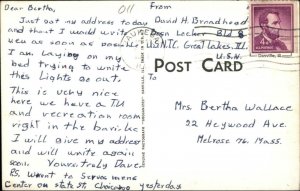 Dear Bertha,
011
Just got my address today
and thought I would write
you as soon as possible.
I am Laying on my
bed trying to write this
Lights go out.
This is very nice
here we have a TV
and recreation room
right in the barilac
I will give my address
and will write again
soon. Yours truly Dave
P.S. Went to Service mens
Center on State St Chicago yesterday
From
David H. Broadhead
Dean Locker Bld 8
U.S.N.T.C. Great Lakes. Ill.
U.S.N.
POST CARD
Danville, Ill.
Mrs. Bertha Wallace
22 Heywood Ave.
Melrose 76. Mass.